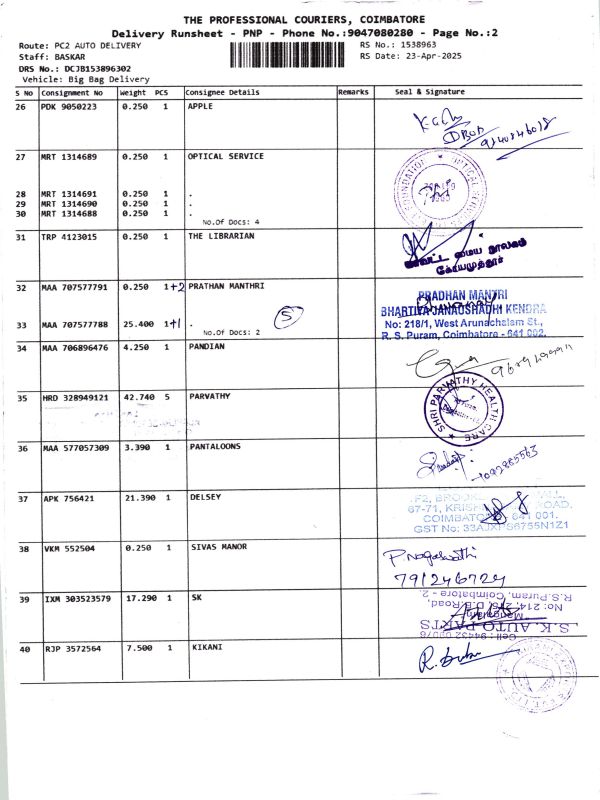 THE PROFESSIONAL COURIERS, COIMBATORE
Delivery Runsheet - PNP - Phone No.:9047080280 - Page No.:2
Route: PC2 AUTO DELIVERY
RS No.: 1538963
Staff: BASKAR
RS Date: 23-Apr-2025
DRS No.: DCJB153896302
Vehicle: Big Bag Delivery
S No Consignment No Weight PCS Consignee Details Remarks Seal & Signature
26 PDK 9050223 0.250 1 APPLE
27 MRT 1314689 0.250 1 OPTICAL SERVICE
28 MRT 1314691 0.250 1 .
29 MRT 1314690 0.250 1 .
30 MRT 1314688 0.250 1 .
No.Of Docs: 4
31 TRP 4123015 0.250 1 THE LIBRARIAN
மைய நூலகம்
கோயமுத்தூர்
32 MAA 707577791 0.250 1+2 PRATHAN MANTHRI
5
33 MAA 707577788 25.400 1+1 .
No.Of Docs: 2
PRADHAN MANTRI
BHARTIYA JANAUSHADHI KENDRA
No: 218/1, West Arunachalam St.,
R. S. Puram, Coimbatore - 641 002.
34 MAA 706896476 4.250 1 PANDIAN
35 HRD 328949121 42.740 5 PARVATHY
SHRI PARVATHY HEALTH CARE
36 MAA 577057309 3.390 1 PANTALOONS
37 APK 756421 21.390 1 DELSEY
67-71, ROAD.
COIMBATORE 641 001.
GST No: 33AJXPS6755N1Z1
38 VKM 552504 0.250 1 SIVAS MANOR
39 IXM 303523579 17.290 1 SK
S.K. AUTO PARTS
No: 214, D.B. Road,
R.S. Puram, Coimbatore - 2.
40 RJP 3572564 7.500 1 KIKANI